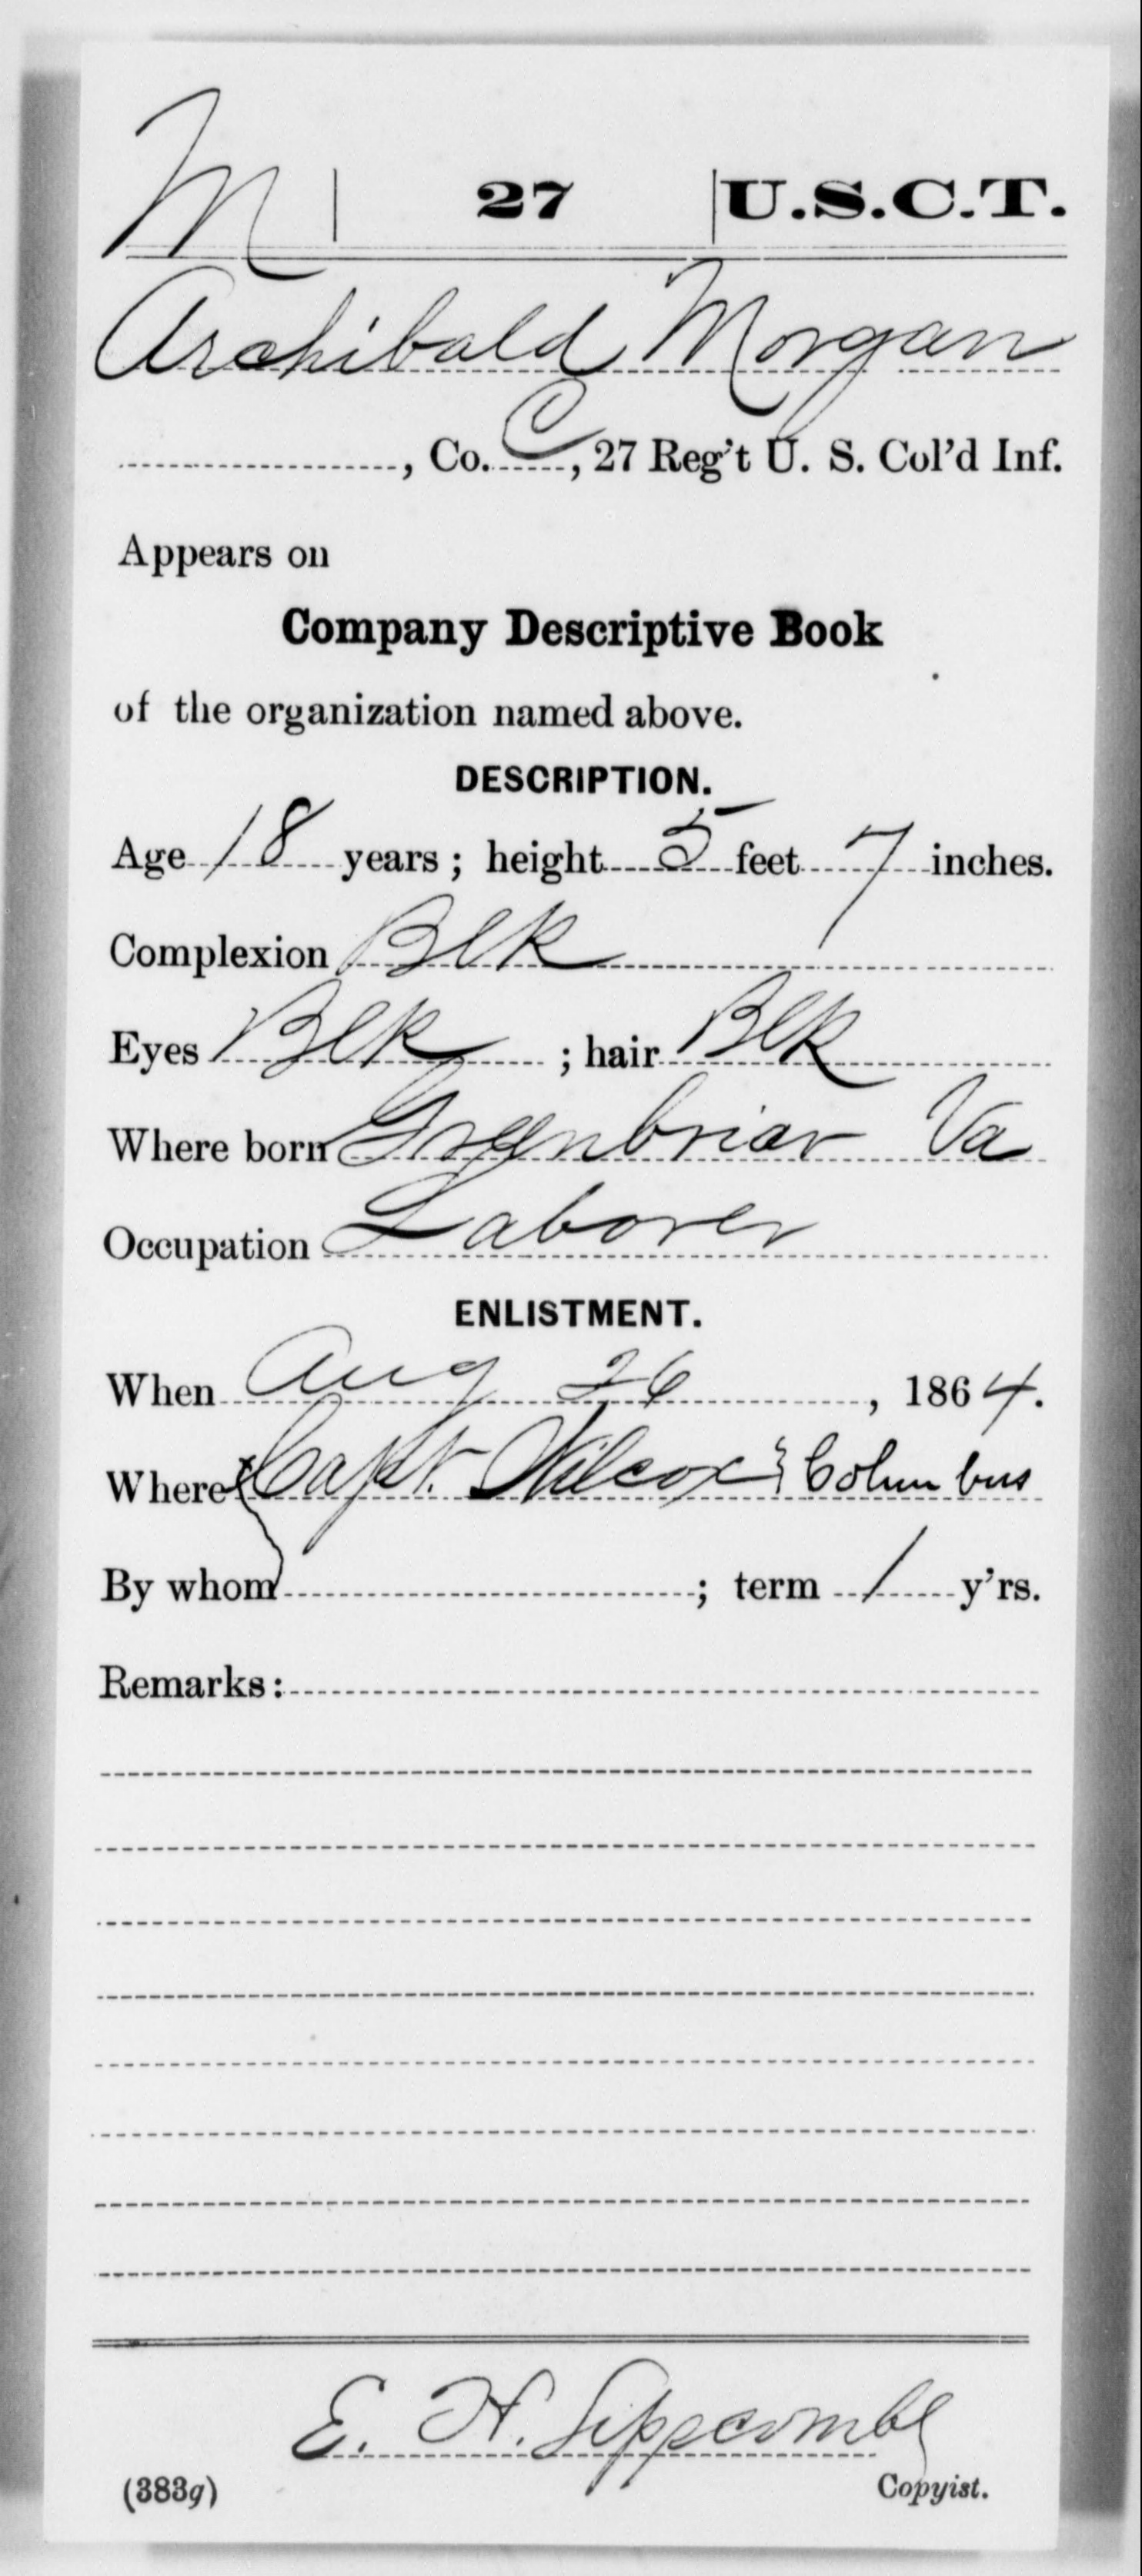 M | 27 | U.S.C.T.
Archibald Morgan
, Co. C, 27 Reg't U. S. Col'd Inf.
Appears on
Company Descriptive Book
of the organization named above.
DESCRIPTION.
Age 18 years; height 5 feet 7 inches.
Complexion Blk
Eyes Blk ; hair Blk
Where born Greenbriar Va
Occupation Laborer
ENLISTMENT.
When Aug 26, 1864.
Where Capt. Wilcox Columbus
By whom ; term 1 y'rs.
Remarks:
E. H. Lippcombe
(383g) Copyist.